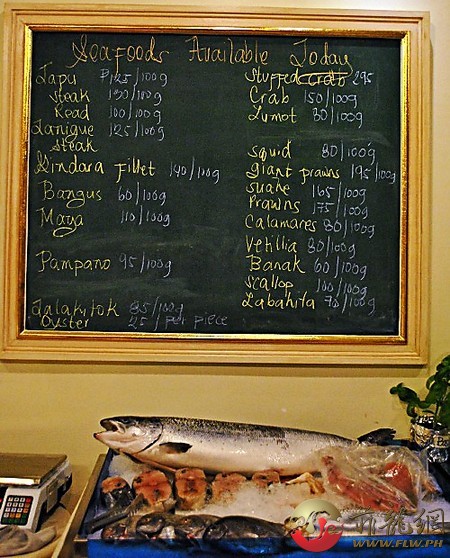 Seafoods Available Today
Lapu ₱125/100g
steak 130/100g
Head 100/100g
Tanigue 125/100g
steak
Gindara Fillet 140/100g
Bangus 60/100g
Maya 110/100g
Pampano 95/100g
Talakitok 85/100g
Oyster 25/per piece
Stuffed Crab 295
Crab 150/100g
Lumot 30/100g
squid 80/100g
giant prawns 195/100g
suahe 165/100g
Prawns 175/100g
Calamares 80/100g
Vetillia 80/100g
Banak 60/100g
scallop 100/100g
Labahita 70/100g
菲龙網
WWW.FLW.PH